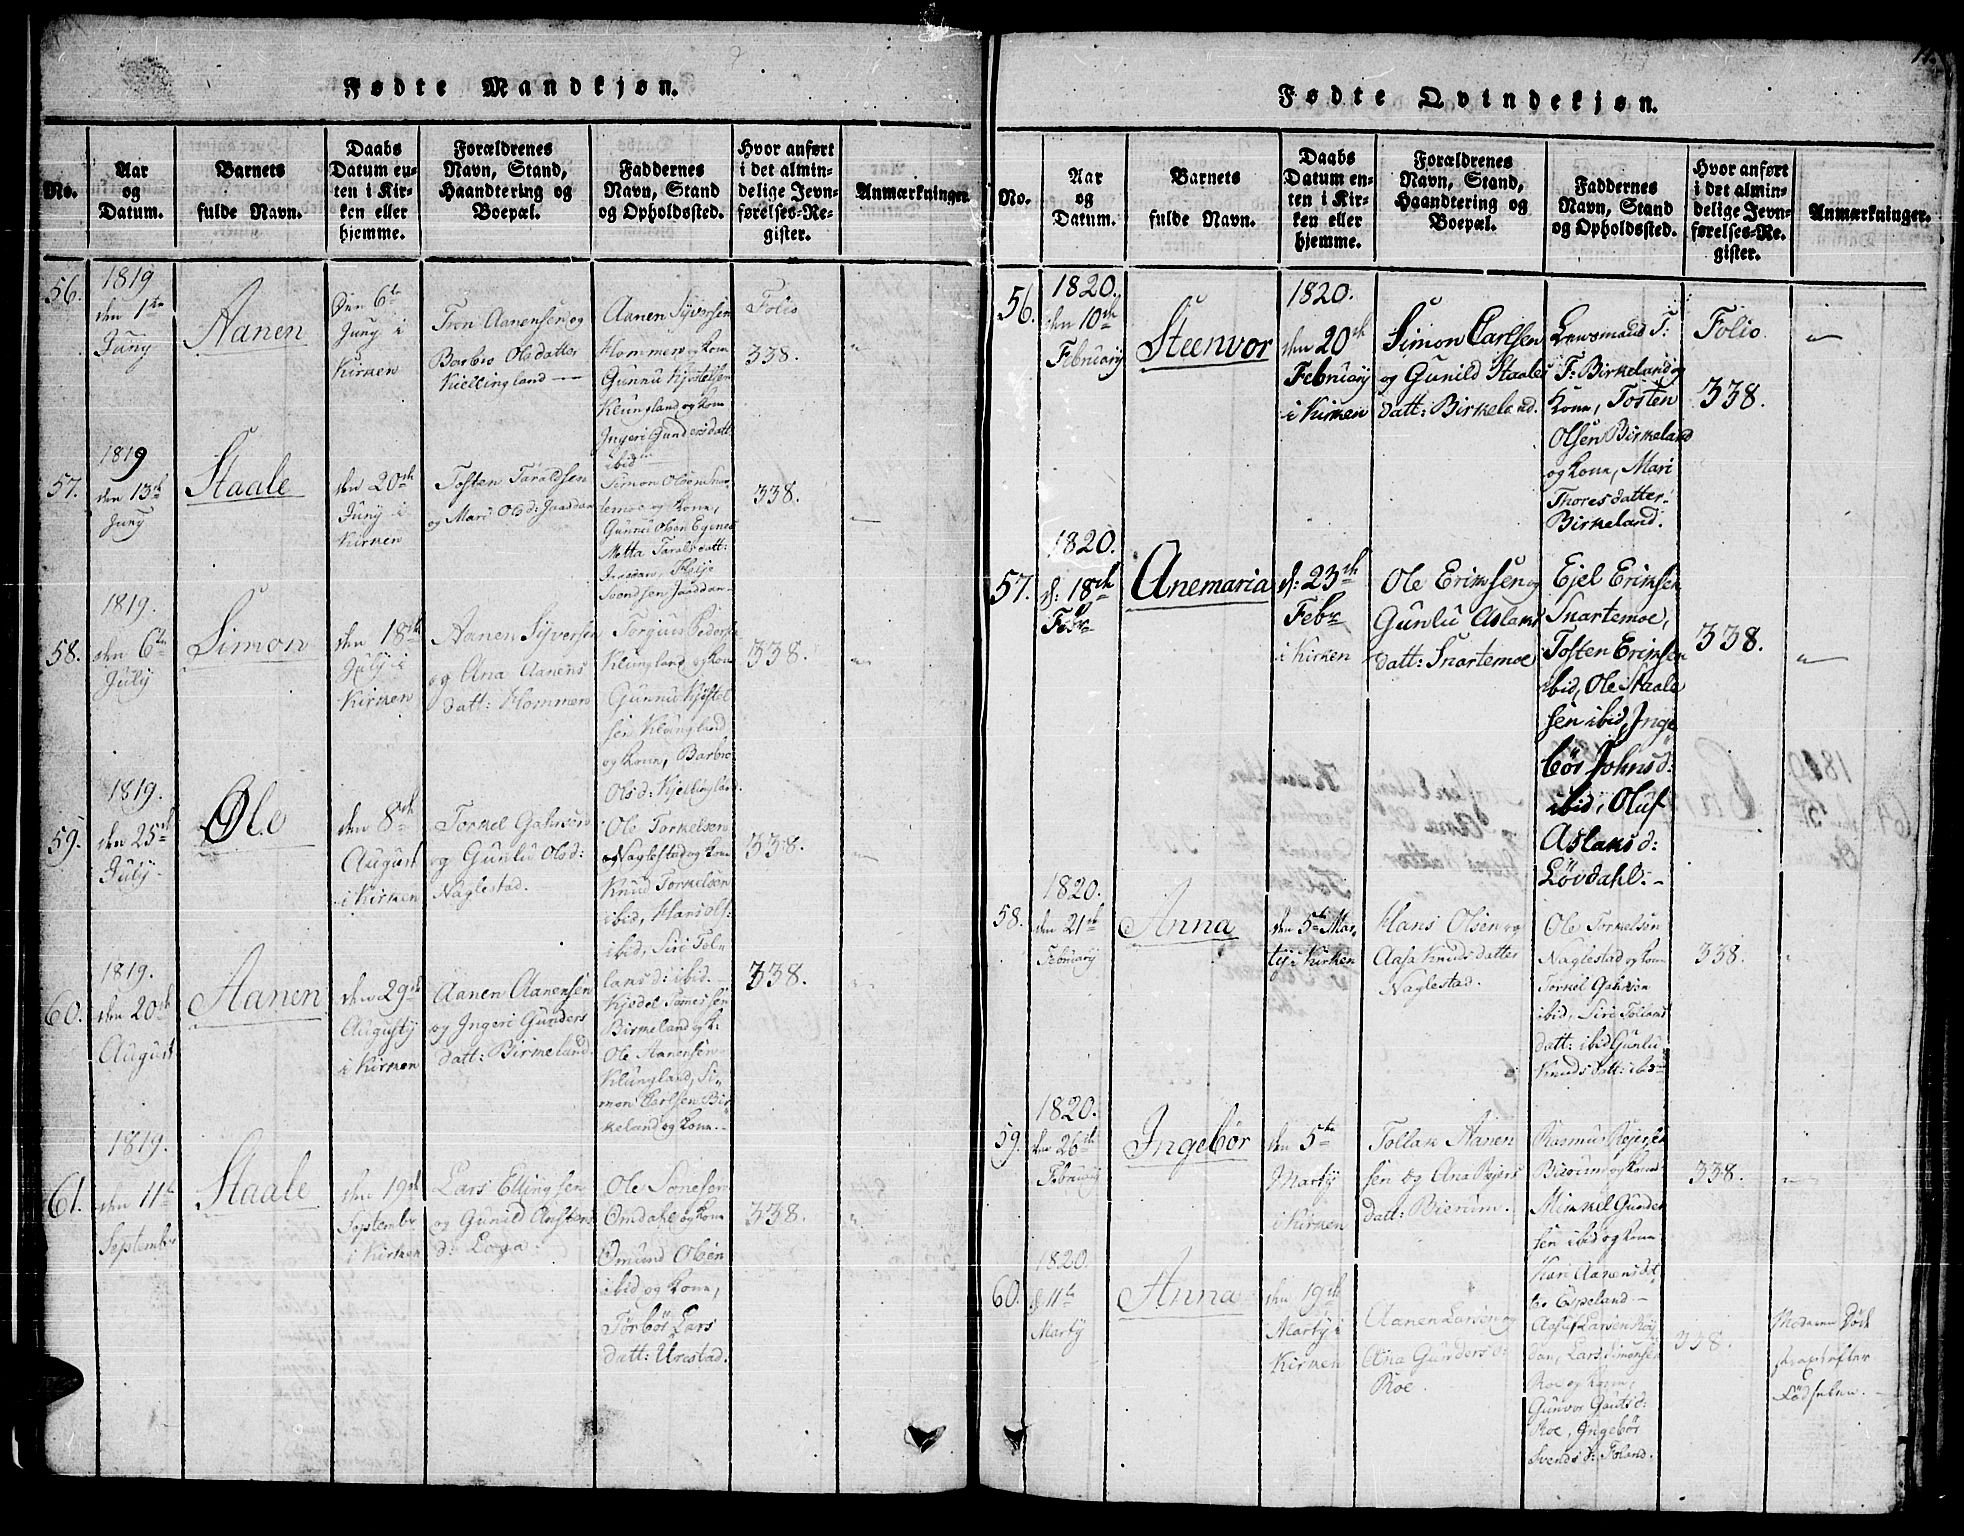 Fødte Mandkjøn.
No.
Aar
og
Datum.
Barnets
fulde Navn.
Daabs
Datum en-
ten i Kir-
ken eller
hjemme.
Forældrenes
Navn, Stand,
Haandtering og
Boepæl.
Faddernes
Navn, Stand
og Opholdssted.
Hvor anført
i det almin-
delige Jevn-
førelses-Re-
gister.
Anmærkninger.
56.
1819
den 1te
Juny
Aanen
Den 6te
Juny i
Kirken
Tron Aanensen og
Barbro Olsdatter
Kiellingland
Aanen Syversen
Hommen og Kone
Gunnu Kjostelsen
Klungland og Kone
Ingeri Gundersdatt
ibid
Folio
338.
57.
1819
den 13de
Juny
Staale
den 20de
Juny i
Kirken
Tosten Taraldsen
og Mari Olsd: Jaaddan
Simon Olsen Snar-
temoe og Kone,
Gunnu Olsen Egenes
Metta Taralsdatt:
Jaaddan, Helje
Svendsen Jaaddan
338.
58.
1819.
den 6te
July
Simon
den 18de
July i
Kirken
Aanen Syversen
og Ana Aanens
datt: Hommen
Torgius Peders
Klungland og Kone
Gunnu Kjostel
sen Klungland
og Kone, Barbro
Olsd: Kjellingland.
338.
59.
1819.
den 25de
July
Ole
den 8de
August
i Kirken
Torkel Gahrson
og Gunlu Olsd:
Naglestad.
Ole Torkelsen
Naglestad og Kone
Knud Torkelsen
ibid, Hans Ols:
ibid, Siri Tol
lansd: ibid.
338.
60.
1819.
den 20de
August
Aanen
den 29de
Augusty
i Kirken
Aanen Aanensen
og Ingeri Gunders
datt: Birkeland.
Kjødel Tønnessen
Birkeland og K:
Ole Aanensen
Klungland, Si-
mon Carlsen Bir-
keland og Kone.
338.
61.
1819.
den 11te
September
Staale
den 19de
Septembr
i Kirken
Lars Ellingsen
og Gunild Anstens
d: Loga.
Ole Tønesen
Omdahl og Kone
Omund Olsen
ibid og Kone,
Torbør Lars
datt: Urestad.
338.
Fødte Qvindekjøn.
No.
Aar
og
Datum.
Barnets
fulde Navn.
Daabs
Datum en-
ten i Kir-
ken eller
hjemme.
Forældrenes
Navn, Stand,
Haandtering og
Boepæl.
Faddernes
Navn, Stand
og Opholdssted.
Hvor anført
i det almin-
delige Jevn-
førelses-Re-
gister.
Anmærkninger.
56.
1820.
den 10de
February
Steenvor
1820.
den 20de
February
i Kirken
Simon Carlsen
og Gunild Staales
datt: Birkeland.
Lensmand T:
F: Birkeland og
Kone, Tosten
Olsen Birkeland
og Kone, Mari
Thoresdatter
Birkeland.
Folio
338.
57.
1820.
d: 18de
Febr
Anemaria
d: 23de
Febr
i Kirken
Ole Eriksen og
Gunlu Aslaks
datt: Snartemoe
Ejel Eriksen
Snartemoe,
Tosten Eriksen
ibid, Ole Staale
sen ibid, Inge
bør Johnsd:
ibid, Oluf
Aslaksd:
Løvdahl.
338.
58.
1820.
den 21de
February
Anna
den 5te Mar-
ty i Kirken
Hans Olsen og
Aasa Knudsdatter
Naglestad.
Ole Torkelsen
Naglestad og Kone
Torkel Gahrson
ibid, Siri Tollans
datt: ibid Gunlu
Knudsdatt: ibid
338.
59.
1820.
den 26de
February
Ingebør
den 5te
Marty
i Kirken
Tollak Aanen
sen og Ana Rejers
datt: Bierum.
Rasmus Rejersen
Bierum og Kone
Mikkel Gunder
sen ibid og Kone
Kari Aanensdt
ter Espeland
338.
60.
1820.
d 11te
Marty
Anna
den 19de
Marty i
Kirken
Aanen Larsen og
Ana Gundersd:
Roe
Larsen Røy
dan, Lars Simonsen
Roe og Kone,
Gunvor Gautsd:
Roe, Ingebør
Svendsd: Foland.
338.
Moderen Død
strax efter
Fødselen.